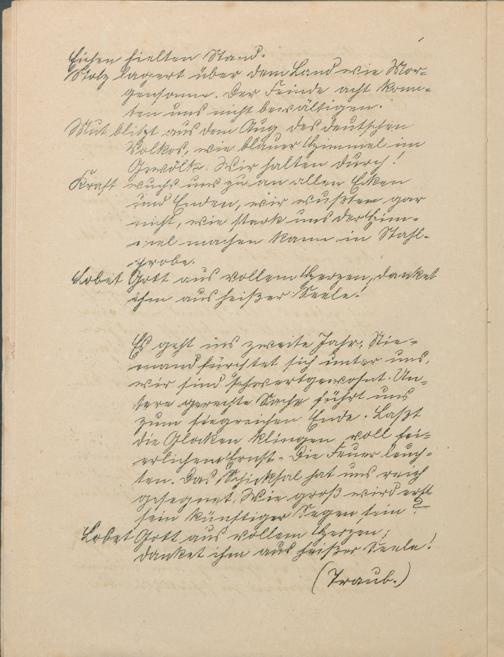 Eichen hielten Stand.
Stolz lagert über dem Land wie Mor-
gensonne. Der Feinde acht konn-
ten uns nicht bewältigen.
Mut blitzt aus dem Aug des deutschen
Volkes, wie blauer Himmel im
Gewölk. Wir halten durch!
Kraft wuchs uns zu an allen Ecken
und Enden, wir wußten gar
nicht, wie stark uns der Him-
mel machen kann in Stahl-
probe.
Lobet Gott aus vollem Herzen, danket
ihm aus heißer Seele!
Es geht ins zweite Jahr; Nie-
mand fürchtet sich unter uns,
wir sind schwertgewohnt. Un-
sere gerechte Sache führt uns
zum siegreichen Ende. Laßt
die Glocken klingen voll fei-
erlichem Ernst. Die Feuer leuch-
ten. Das Schicksal hat uns reich
gesegnet. Wie groß wird erst
sein künftiger Segen sein?
Lobet Gott aus vollem Herzen;
danket ihm aus heißer Seele!
(Traub.)